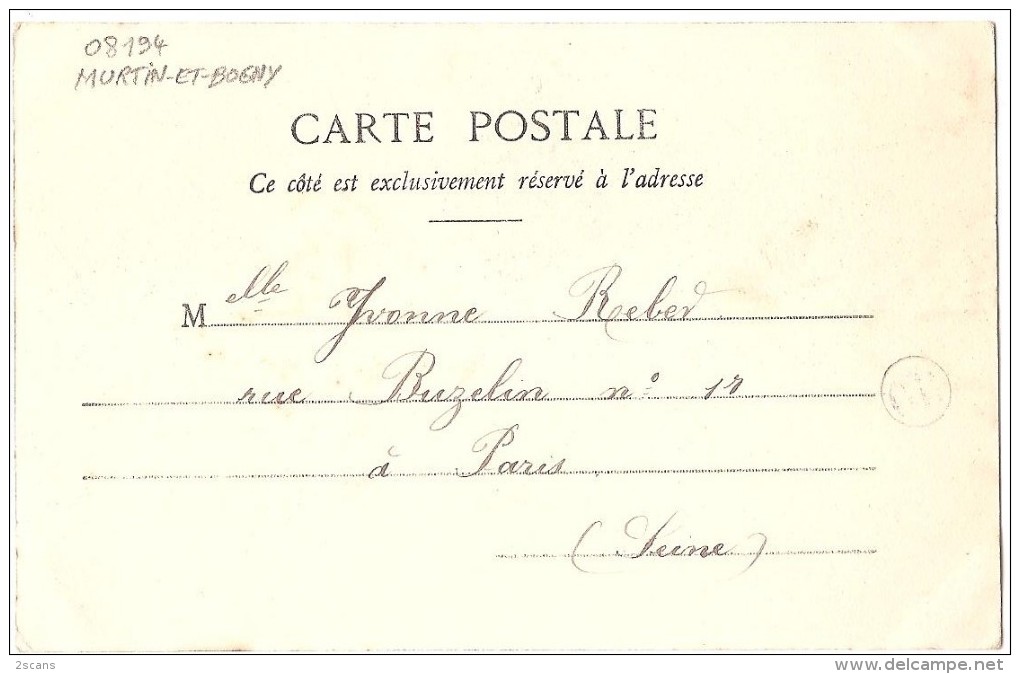 08194
MURTIN-ET-BOGNY
CARTE POSTALE
Ce côté est exclusivement réservé à l'adresse
Melle Yvonne Reber
rue Buzelin n°
à Paris
(Seine)
2scans
www.delcampe.net